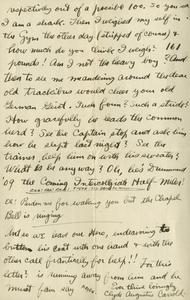 respectively out of a possible 100. So you see
I am a shark. Then I weighed my self in
the Gym the other day (stripped of course) &
how much do you think I weigh? 161
pounds! Am I not the heavy boy? And
then to see me meandering around the dear
old track would cheer your old
German Heist. Such form! Such a stride!
How gracefully he leads the common
herd? See the Captain stop and ask him
how he slept last night? See the
trainer help him on with his sweater?
Want to be anyway? Oh, he's Drummond
'09 the Coming Intercollegiate Half-Miler!
ex: Pardon me for waking you but the Chapel
Bell is ringing
And so we lead our Hero, endeavoring to
button his coat with one hand & with the
other call frantically for help!! For this
letter is running away from him and he
must fain say